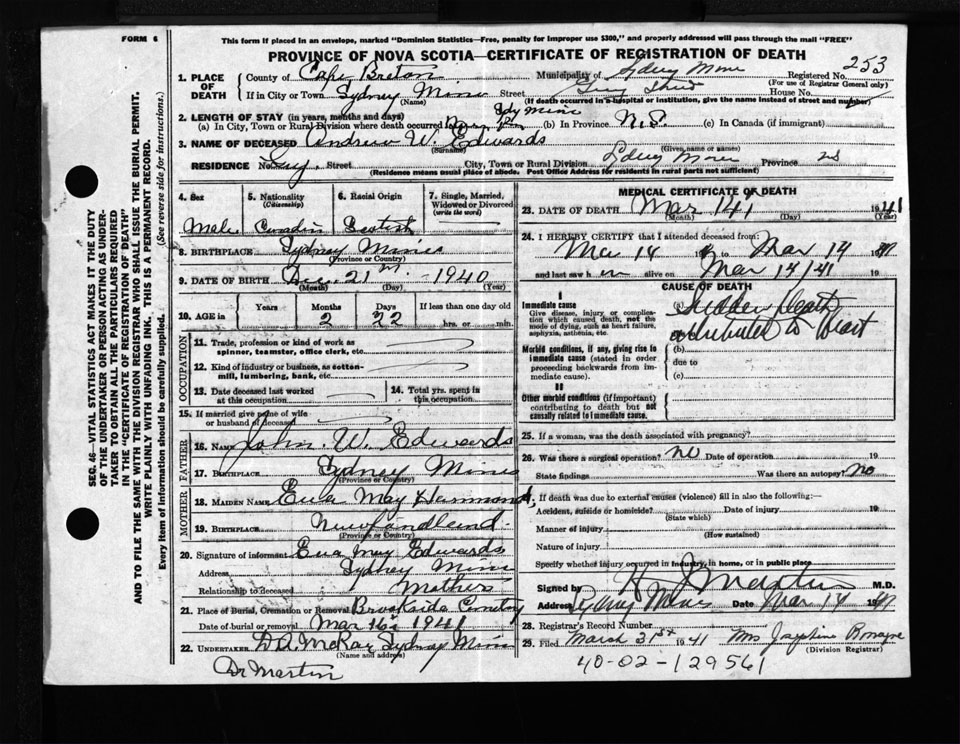 FORM 6
This form if placed in an envelope, marked "Dominion Statistics—Free, penalty for improper use $300," and properly addressed will pass through the mail "FREE"
PROVINCE OF NOVA SCOTIA—CERTIFICATE OF REGISTRATION OF DEATH
253
1. PLACE OF DEATH County of Cape Breton Municipality of Sydney Mines Registered No.
(For use of Registrar General only)
If in City or Town Sydney Mines Street House No.
(Name) (If death occurred in a hospital or institution, give the name instead of street and number)
2. LENGTH OF STAY (in years, months and days)
(a) In City, Town or Rural Division where death occurred Syd Mines (b) In Province N.S. (c) In Canada (if immigrant)
3. NAME OF DECEASED Andrew W. Edwards
(Surname) (Given name or names)
RESIDENCE No. Guy. Street City, Town or Rural Division Sydney Mines Province NS
(Residence means usual place of abode. Post Office Address for residents in rural parts not sufficient)
4. Sex 5. Nationality (Citizenship) 6. Racial Origin 7. Single, Married, Widowed or Divorced (write the word)
Male Canadin Scotish
8. BIRTHPLACE Sydney Mines
(Province or Country)
9. DATE OF BIRTH Dec. 21 1940
(Month) (Day) (Year)
10. AGE in Years Months Days If less than one day old
2 22 hrs. or min.
OCCUPATION
11. Trade, profession or kind of work as spinner, teamster, office clerk, etc.
12. Kind of industry or business, as cotton-mill, lumbering, bank, etc.
13. Date deceased last worked at this occupation 14. Total yrs. spent in this occupation
15. If married give name of wife or husband of deceased
FATHER
16. NAME John W. Edwards
17. BIRTHPLACE Sydney Mines
(Province or Country)
MOTHER
18. MAIDEN NAME Eva May Hammond
19. BIRTHPLACE Newfoundland
(Province or Country)
20. Signature of informant Eva May Edwards
Address Sydney Mines
Relationship to deceased Mother
21. Place of Burial, Cremation or Removal Brookside Cemetery
Date of burial or removal Mar 16 1941
22. UNDERTAKER D.A. McKay Sydney Mines
(Name and address)
Dr Martin
MEDICAL CERTIFICATE OF DEATH
23. DATE OF DEATH Mar 14 1941
(Month) (Day) (Year)
24. I HEREBY CERTIFY that I attended deceased from:
Mar 14 Mar 14 41
and last saw h alive on Mar 14/41 19
CAUSE OF DEATH
I
Immediate cause
Give disease, injury or complication which caused death, not the mode of dying, such as heart failure, asphyxia, asthenia, etc.
(a) Sudden Death
attributed to Heart
Morbid conditions, if any, giving rise to immediate cause (stated in order proceeding backwards from immediate cause).
(b)
due to
(c)
II
Other morbid conditions (if important) contributing to death but not causally related to immediate cause.
25. If a woman, was the death associated with pregnancy?
26. Was there a surgical operation? no Date of operation 19
State findings Was there an autopsy? no
27. If death was due to external causes (violence) fill in also the following:—
Accident, suicide or homicide? Date of injury 19
(State which)
Manner of injury
(How sustained)
Nature of injury
Specify whether injury occurred in industry, in home, or in public place
Signed by Martin M.D.
Address Sydney Mines Date Mar 14 1941
28. Registrar's Record Number
29. Filed March 31st 1941 Mrs Josephine
(Division Registrar)
40-02-129561
SEC. 46—VITAL STATISTICS ACT MAKES IT THE DUTY
OF THE UNDERTAKER OR PERSON ACTING AS UNDER-
TAKER TO OBTAIN ALL THE PARTICULARS REQUIRED
IN THE "CERTIFICATE OF REGISTRATION OF DEATH"
AND TO FILE THE SAME WITH THE DIVISION REGISTRAR WHO SHALL ISSUE THE BURIAL PERMIT.
WRITE PLAINLY WITH UNFADING INK. THIS IS A PERMANENT RECORD.
Every item of information should be carefully supplied. (See reverse side for instructions.)